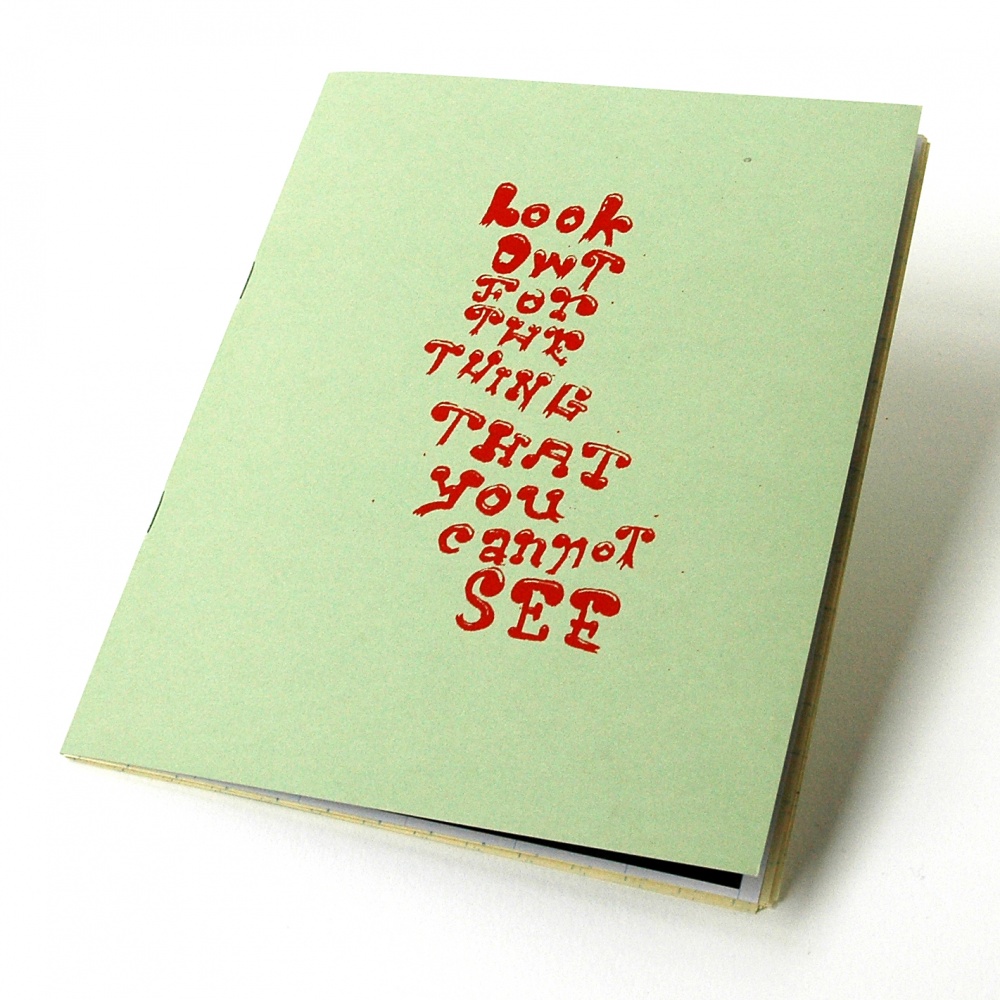 Look
OwT
For
THE
THING
THAT
you
cannoT
SEE